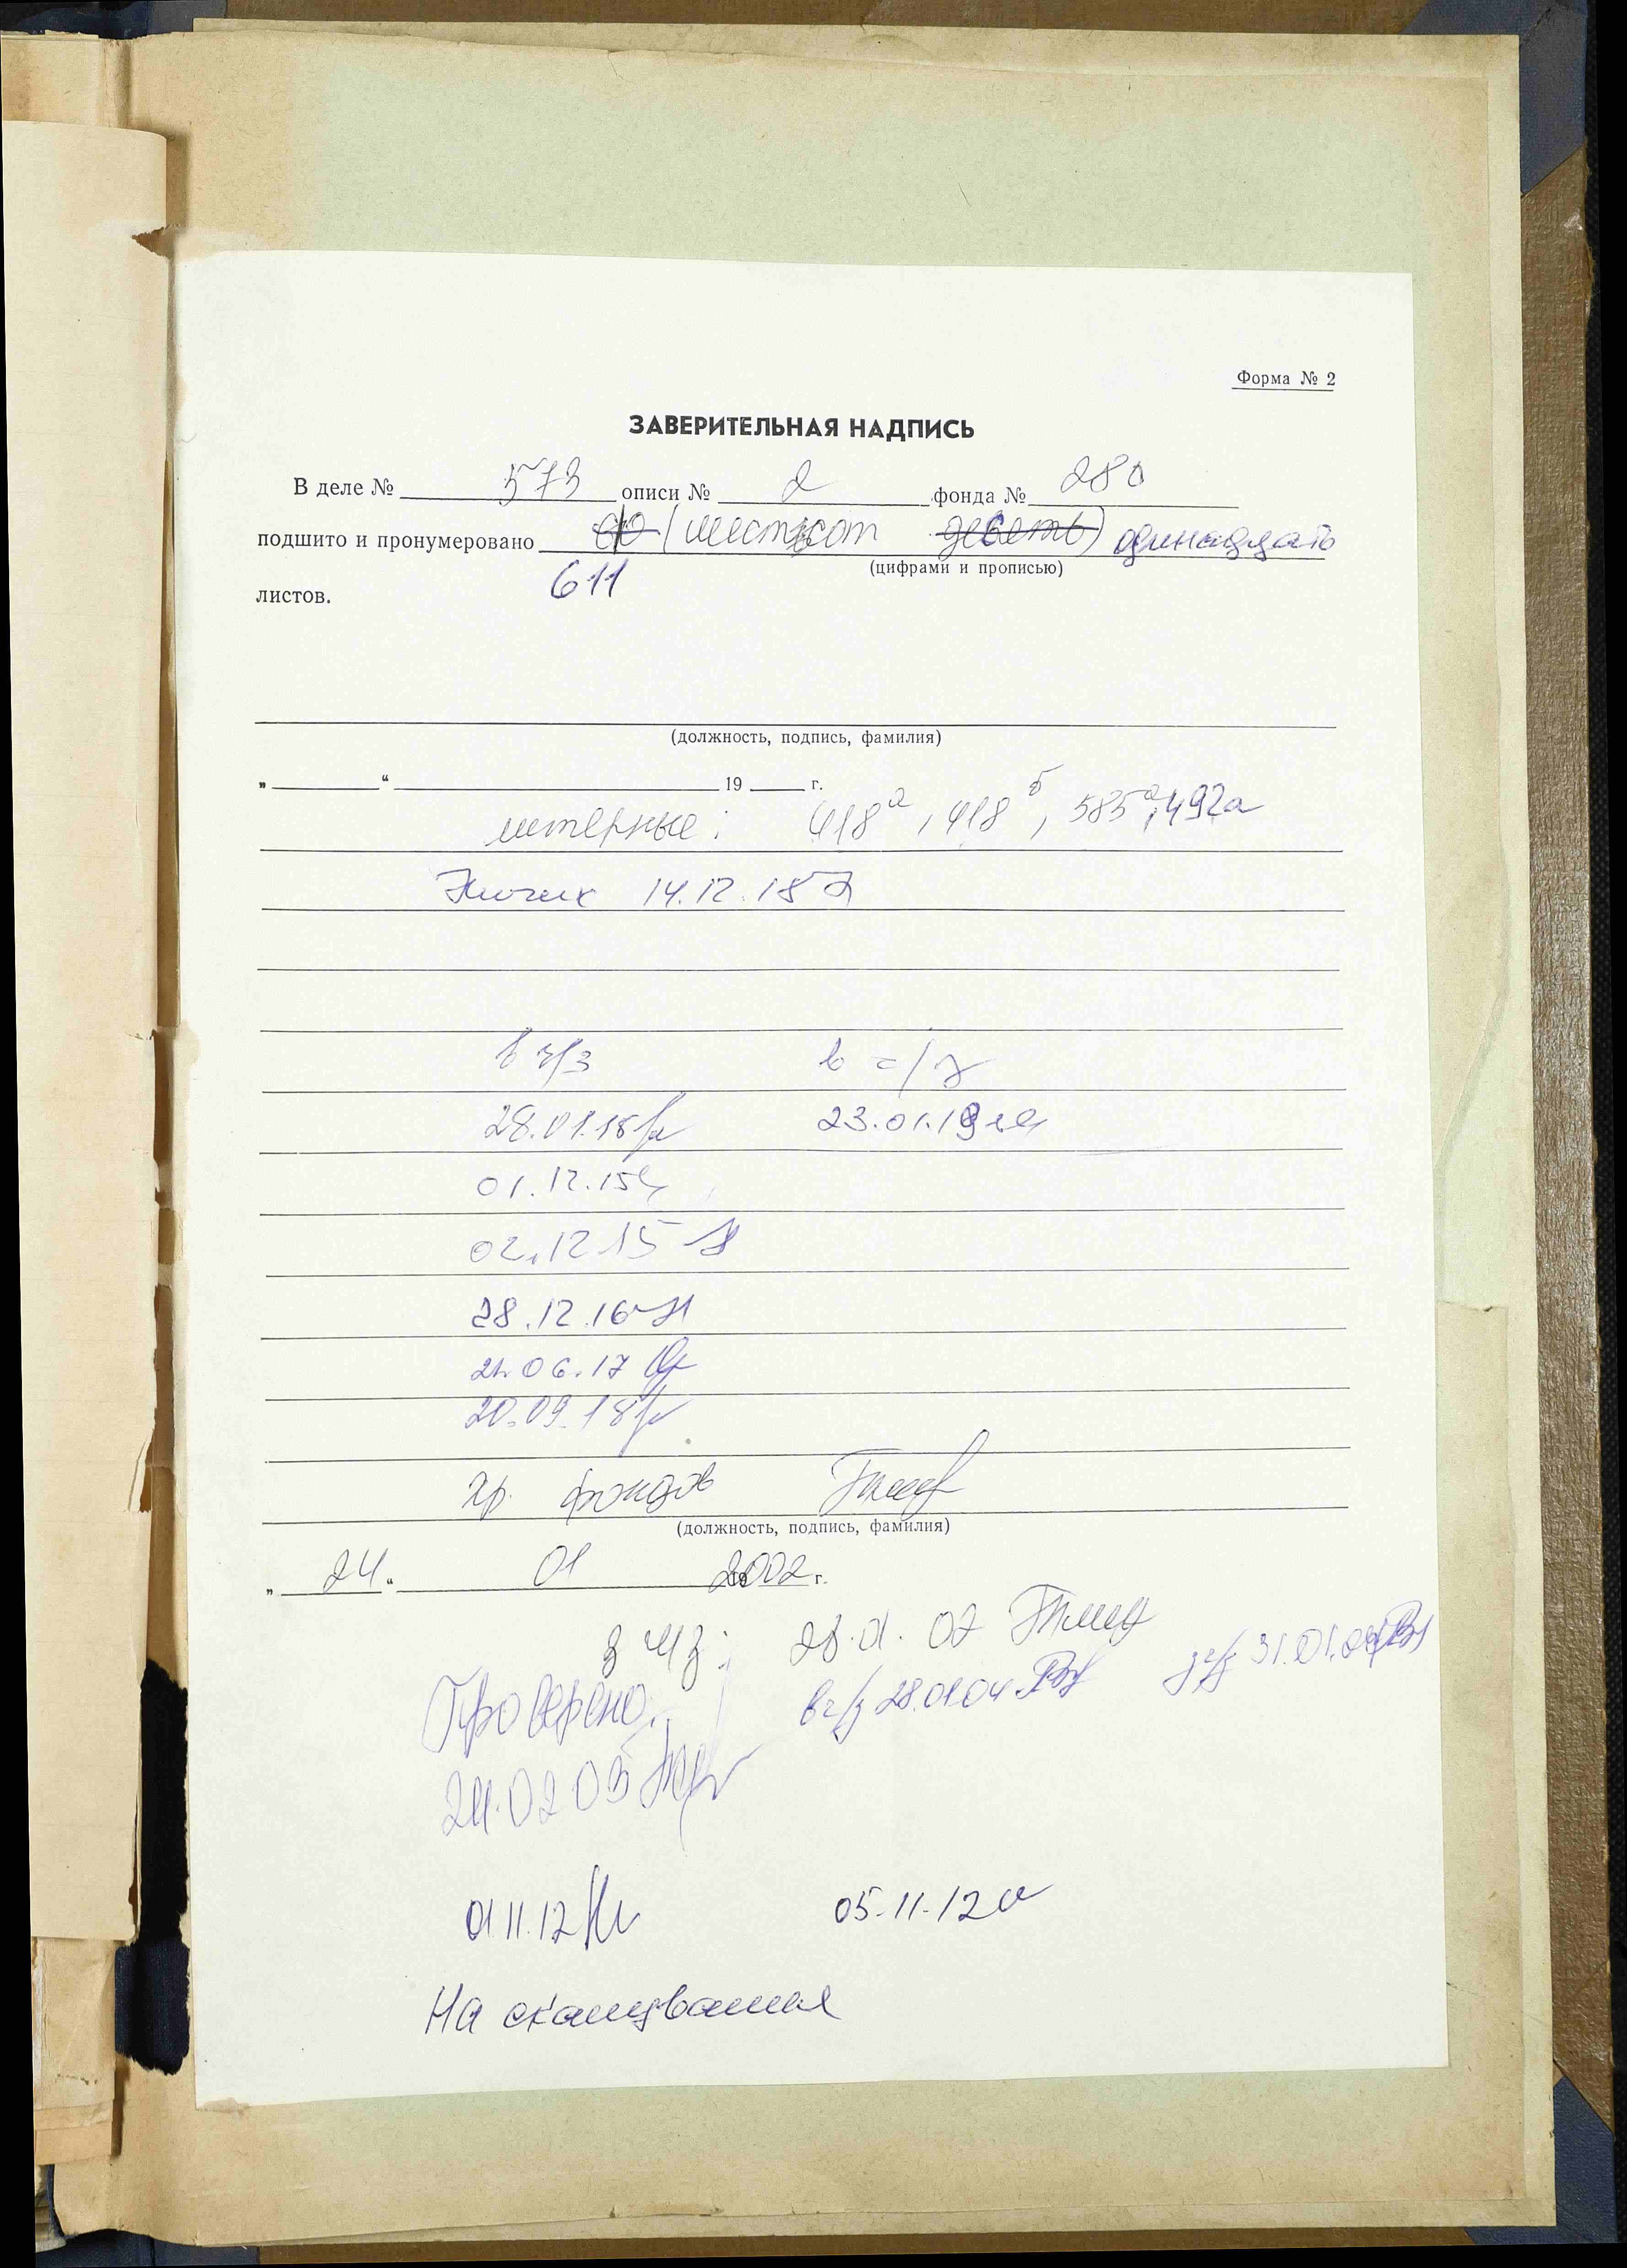 Форма № 2
ЗАВЕРИТЕЛЬНАЯ НАДПИСЬ
В деле № 573 описи № 2 фонда № 280
подшито и пронумеровано (шестьсот девять) одинадцать
(цифрами и прописью)
листов. 611
(должность, подпись, фамилия)
„ “ 19 г.
литерные: 418а, 418б, 585а, 492а
14.12.18
в ч/з в ч/з
28.01.15 23.01.19
01.12.15
02.12 15
28.12.16
21.06.17
20.09.18
хр. фондов
(должность, подпись, фамилия)
„ 24 “ 01 2002 г.
в ч/з: 28.01.02
в ч/з 28.01.04 31.01.04
Проверено
24.02 05
01 11.12 05.11.12
На сканирования